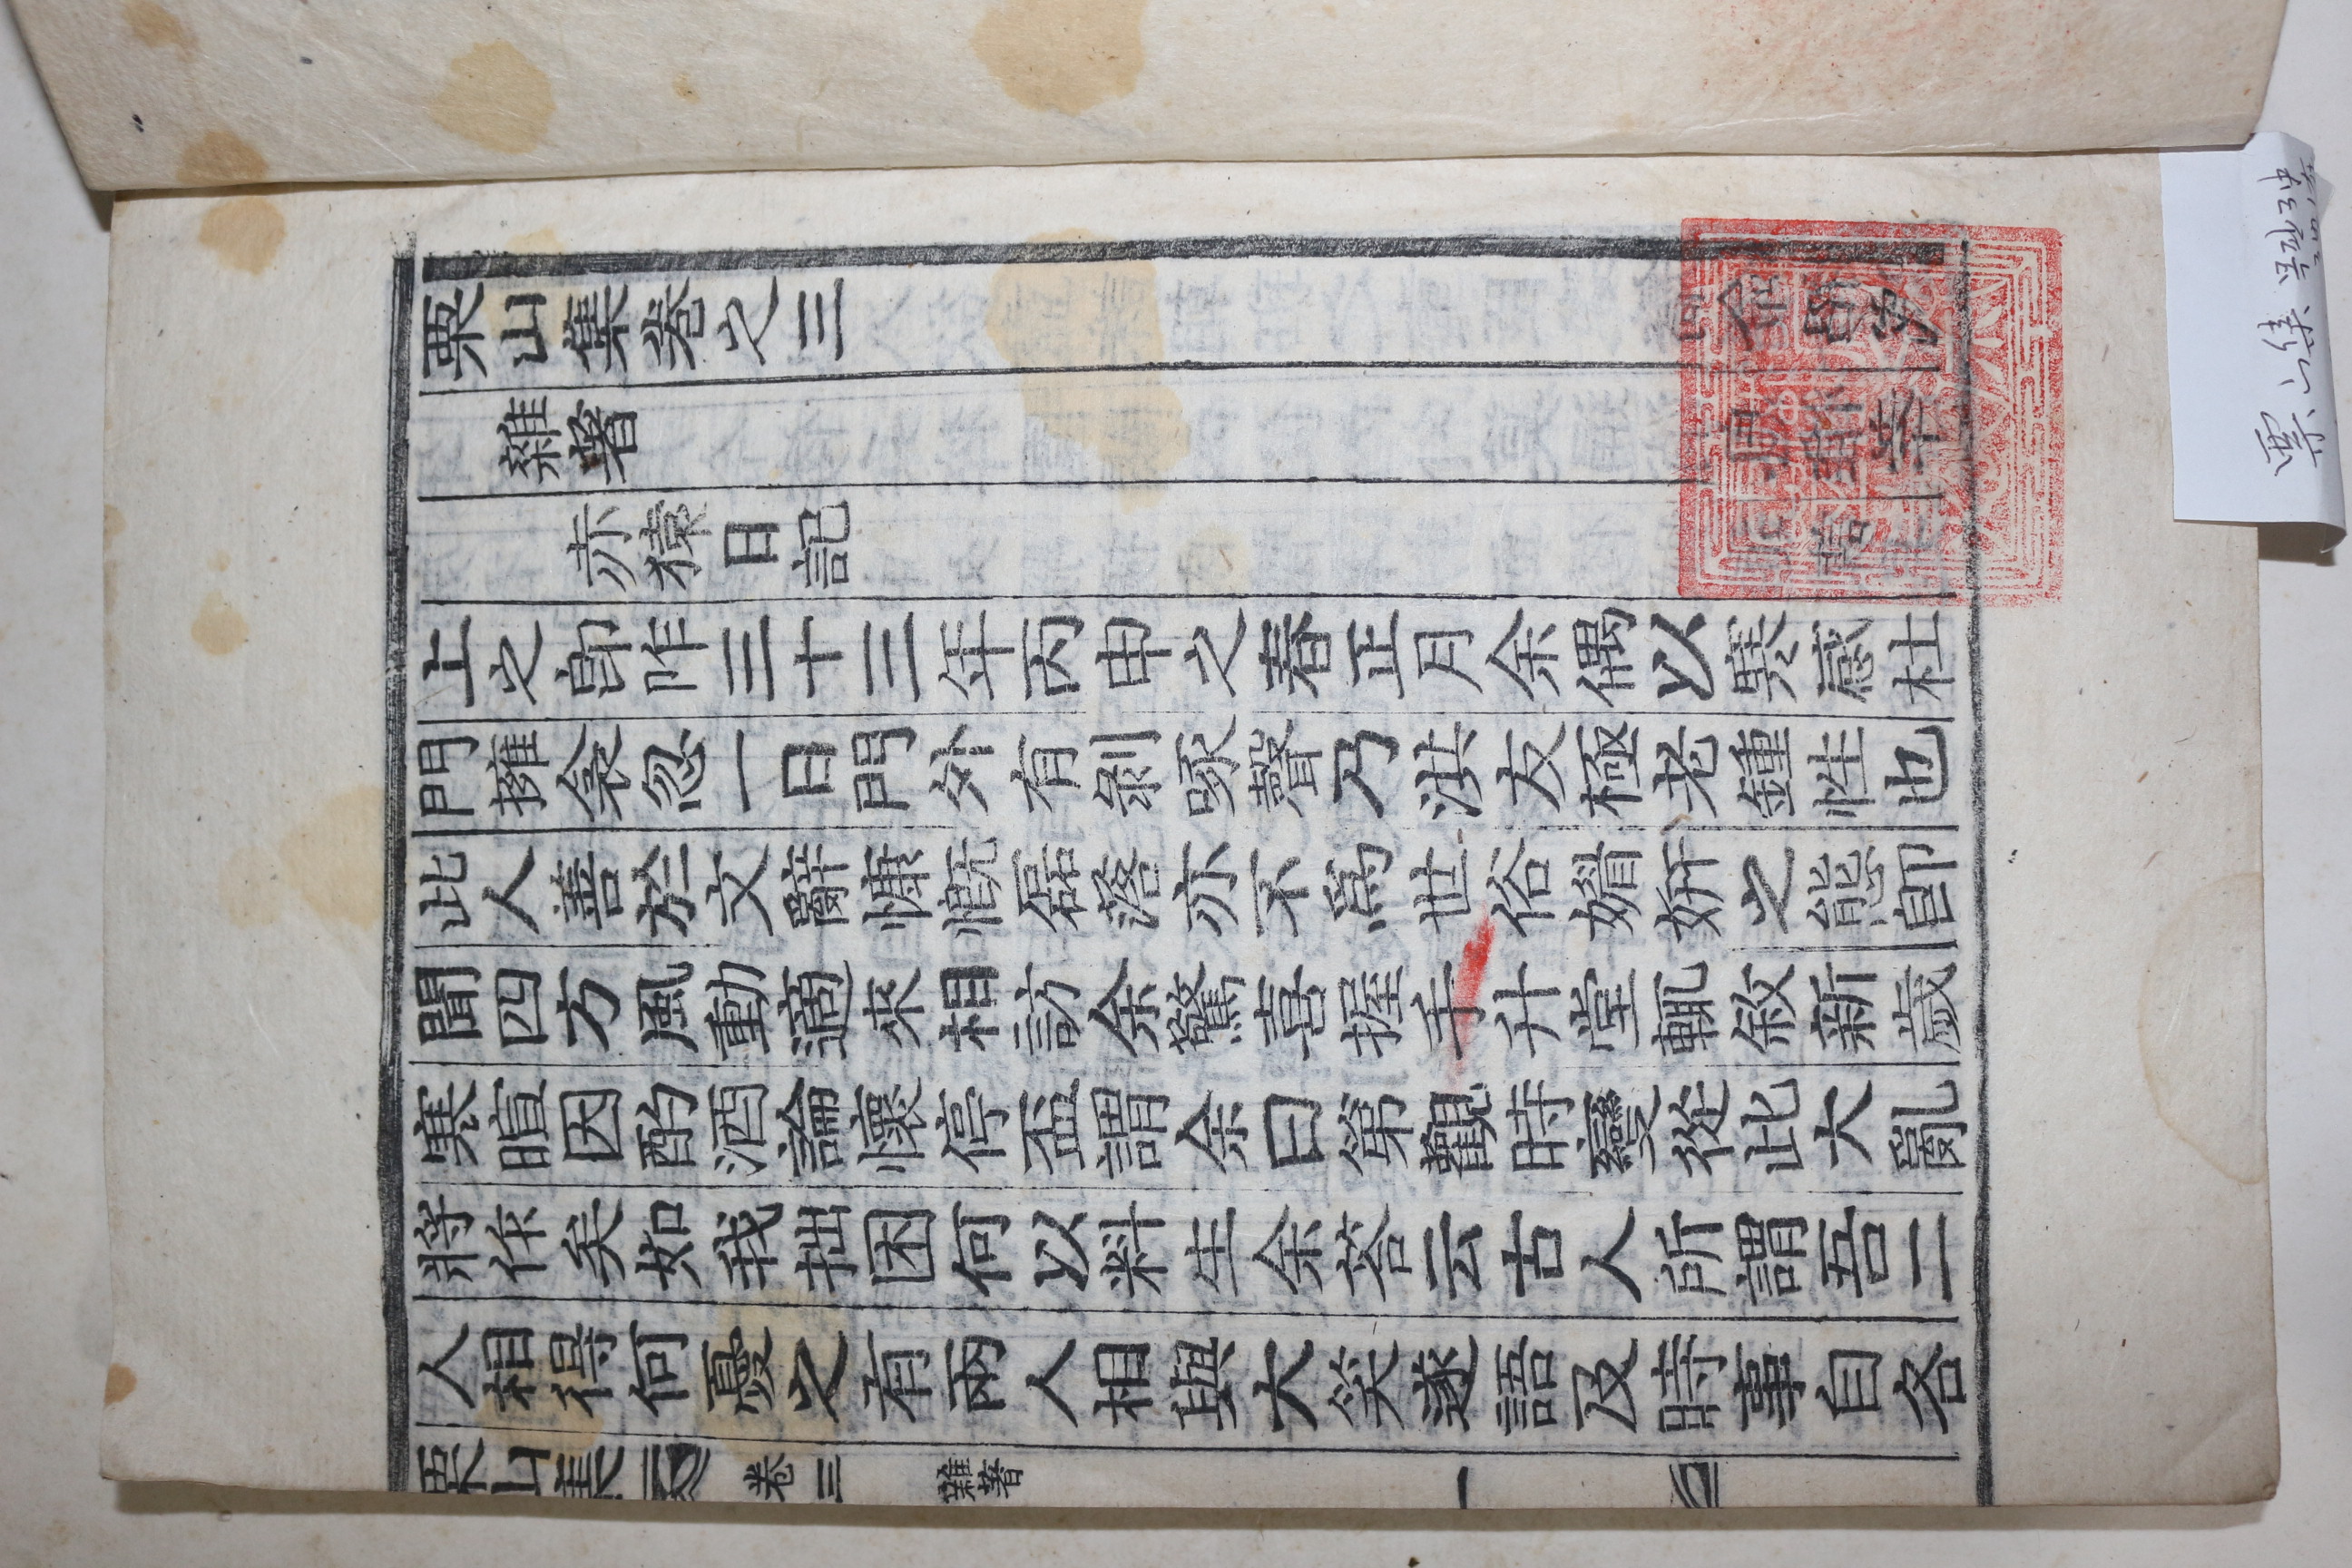 栗山集卷之三
雜著
亦猿日記
上之卽阼三十三年丙申之春正月余偶以寒感杜
門擁衾忽一日門外有剝啄聲乃洪友極老鍾性也
此人善於文辭慷慨磊落亦不爲世俗媚姸之態卽
聞四方風動適來相訪余驚喜握手升堂輒敘新歲
寒暄因酌酒論懷停盃謂余曰第觀時變從此大亂
將作矣如我拙困何以料生余答云古人所謂吾二
人相得何憂之有兩人相與大笑遂語及時事自各
栗山集 卷三 雜著 一
栗山集